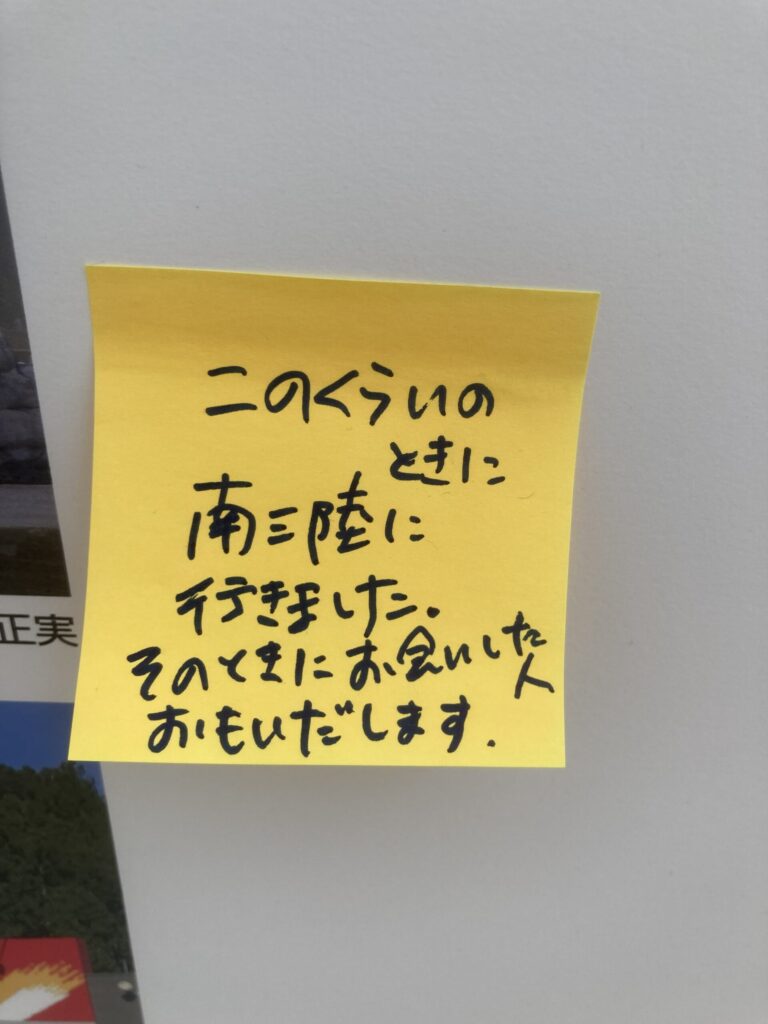 このくらいの
ときに
南三陸に
行きました.
そのときにお会いした
人
おもいだします.
正実